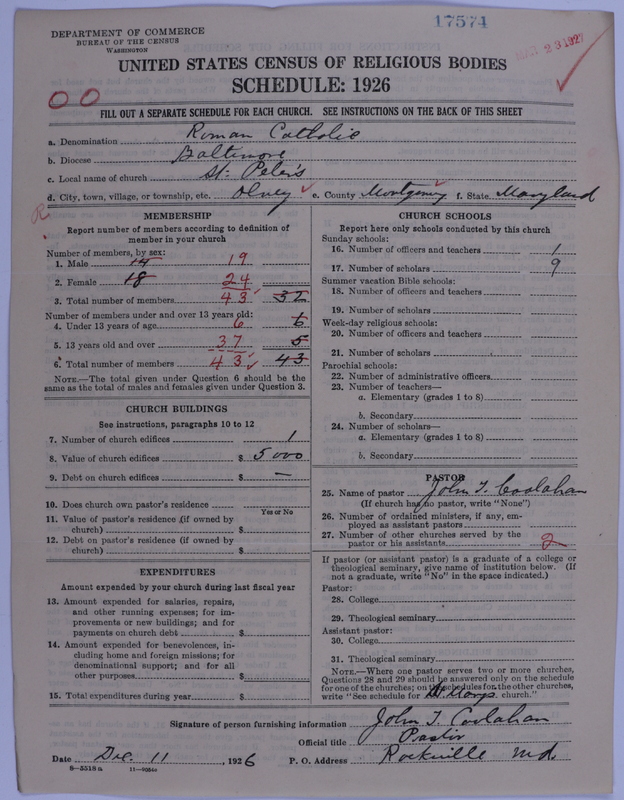 17574
DEPARTMENT OF COMMERCE
BUREAU OF THE CENSUS
WASHINGTON
MAR 23 1927
UNITED STATES CENSUS OF RELIGIOUS BODIES
SCHEDULE: 1926
00
FILL OUT A SEPARATE SCHEDULE FOR EACH CHURCH. SEE INSTRUCTIONS ON THE BACK OF THIS SHEET
a. Denomination Roman Catholic
b. Diocese Baltimore
c. Local name of church St. Peter's
d. City, town, village, or township, etc. Olney e. County Montgomery f. State Maryland
R
MEMBERSHIP
Report number of members according to definition of
member in your church
Number of members, by sex:
1. Male 14 19
2. Female 18 24
3. Total number of members 43 32
Number of members under and over 13 years old:
4. Under 13 years of age 6 6
5. 13 years old and over 37 5
6. Total number of members 43 43
NOTE.—The total given under Question 6 should be the
same as the total of males and females given under Question 3.
CHURCH BUILDINGS
See instructions, paragraphs 10 to 12
7. Number of church edifices 1
8. Value of church edifices $ 5000
9. Debt on church edifices $ —
10. Does church own pastor's residence
Yes or No
11. Value of pastor's residence (if owned by
church) $
12. Debt on pastor's residence (if owned by
church) $
EXPENDITURES
Amount expended by your church during last fiscal year
13. Amount expended for salaries, repairs,
and other running expenses; for im-
provements or new buildings; and for
payments on church debt $
14. Amount expended for benevolences, in-
cluding home and foreign missions; for
denominational support; and for all
other purposes $
15. Total expenditures during year $
CHURCH SCHOOLS
Report here only schools conducted by this church
Sunday schools:
16. Number of officers and teachers 1
17. Number of scholars 9
Summer vacation Bible schools:
18. Number of officers and teachers
19. Number of scholars
Week-day religious schools:
20. Number of officers and teachers
21. Number of scholars
Parochial schools:
22. Number of administrative officers
23. Number of teachers—
a. Elementary (grades 1 to 8)
b. Secondary
24. Number of scholars—
a. Elementary (grades 1 to 8)
b. Secondary
PASTOR
25. Name of pastor John T. Coolahan
(If church has no pastor, write "None")
26. Number of ordained ministers, if any, em-
ployed as assistant pastors
27. Number of other churches served by the
pastor or his assistants 2
If pastor (or assistant pastor) is a graduate of a college or
theological seminary, give name of institution below. (If
not a graduate, write "No" in the space indicated.)
Pastor:
28. College
29. Theological seminary
Assistant pastor:
30. College
31. Theological seminary
NOTE.—Where one pastor serves two or more churches,
Questions 28 and 29 should be answered only on the schedule
for one of the churches; on the schedules for the other churches,
write "See schedule for St. Marys church."
Signature of person furnishing information John T. Coolahan
Official title Pastor
Date Dec. 11, 1926 P. O. Address Rockville Md.
8-5518a 11-9054a